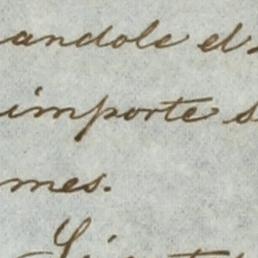 andole el
importe s
mes.